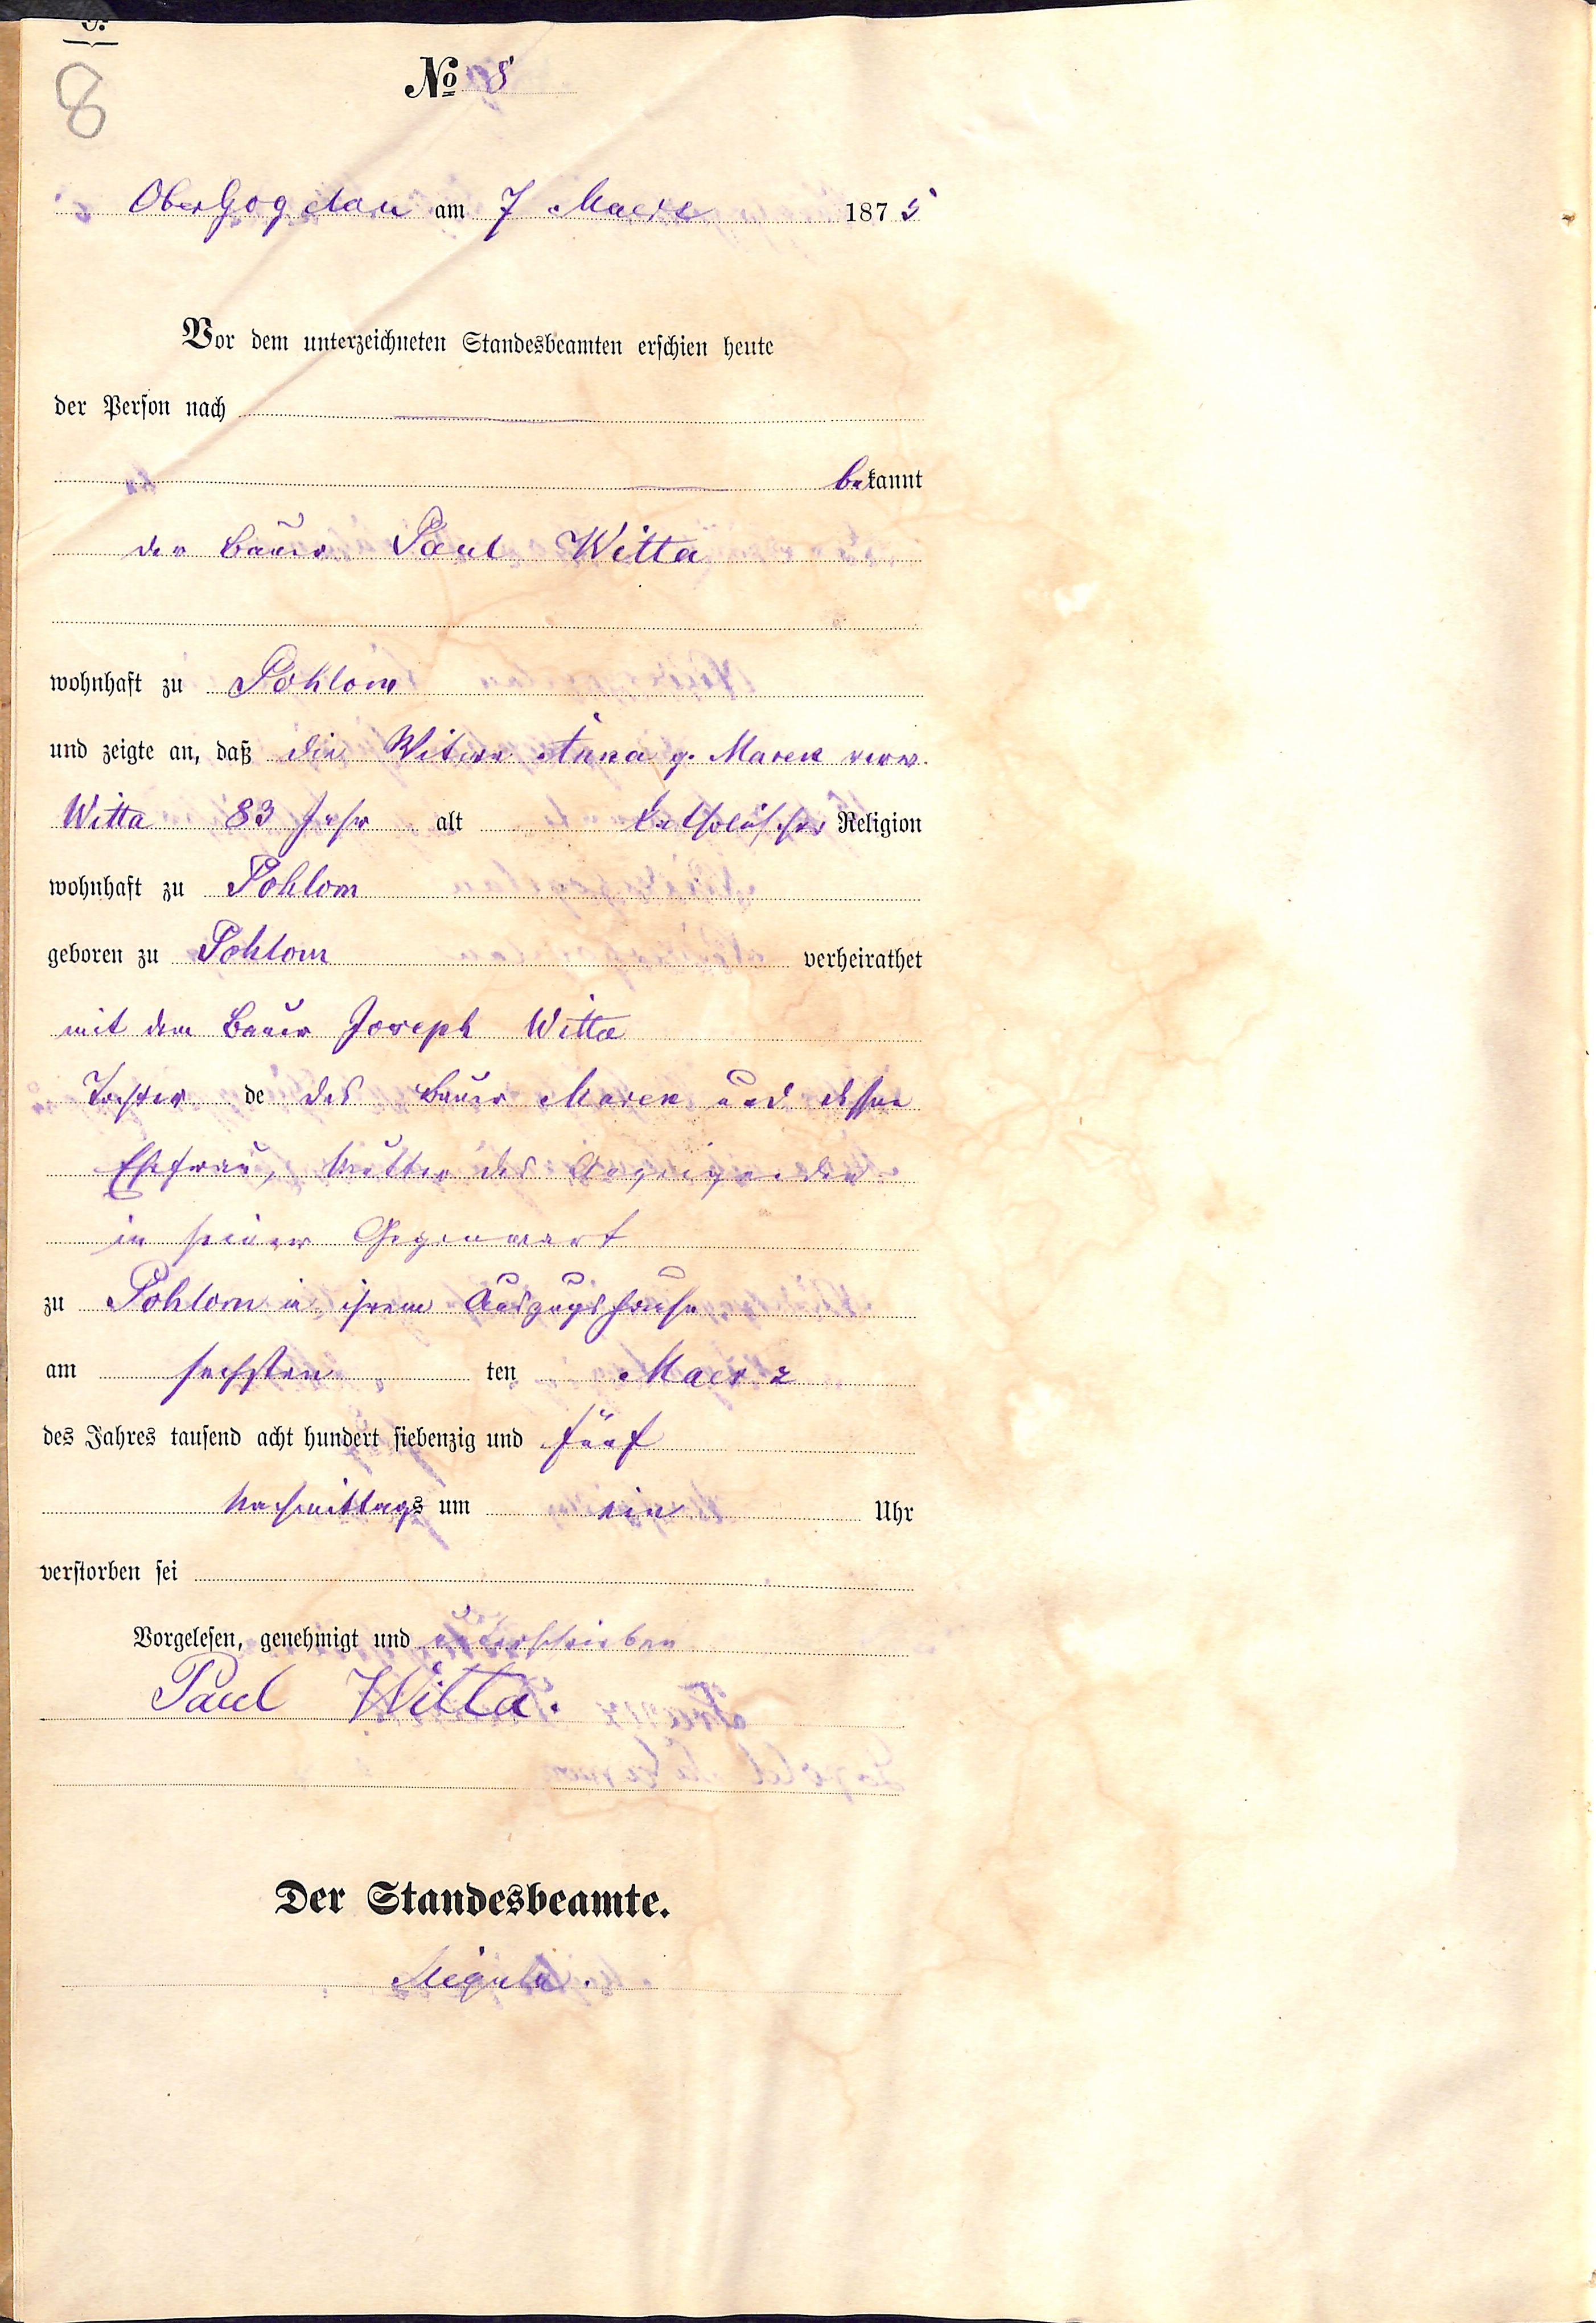 8
No 8
OberGogolau am 7 Maerz 1875
Vor dem unterzeichneten Standesbeamten erschien heute
der Person nach
bekannt
der Bauer Paul Witta
wohnhaft zu Pohlom
und zeigte an, daß die Witwe Anna g. Marek verw.
Witta 83 Jahr alt katholischer Religion
wohnhaft zu Pohlom
geboren zu Pohlom verheirathet
mit dem Bauer Joseph Witta
Tochter de des Bauer Marek und dessen
Ehefrau, Mutter des Anzeigenden
in seiner Gegenwart
zu Pohlom in ihrem Auszugshause
am sechsten ten Maerz
des Jahres tausend acht hundert siebenzig und fünf
Nachmittags um ein Uhr
verstorben sei
Vorgelesen, genehmigt und unterschrieben
Paul Witta.
Der Standesbeamte.